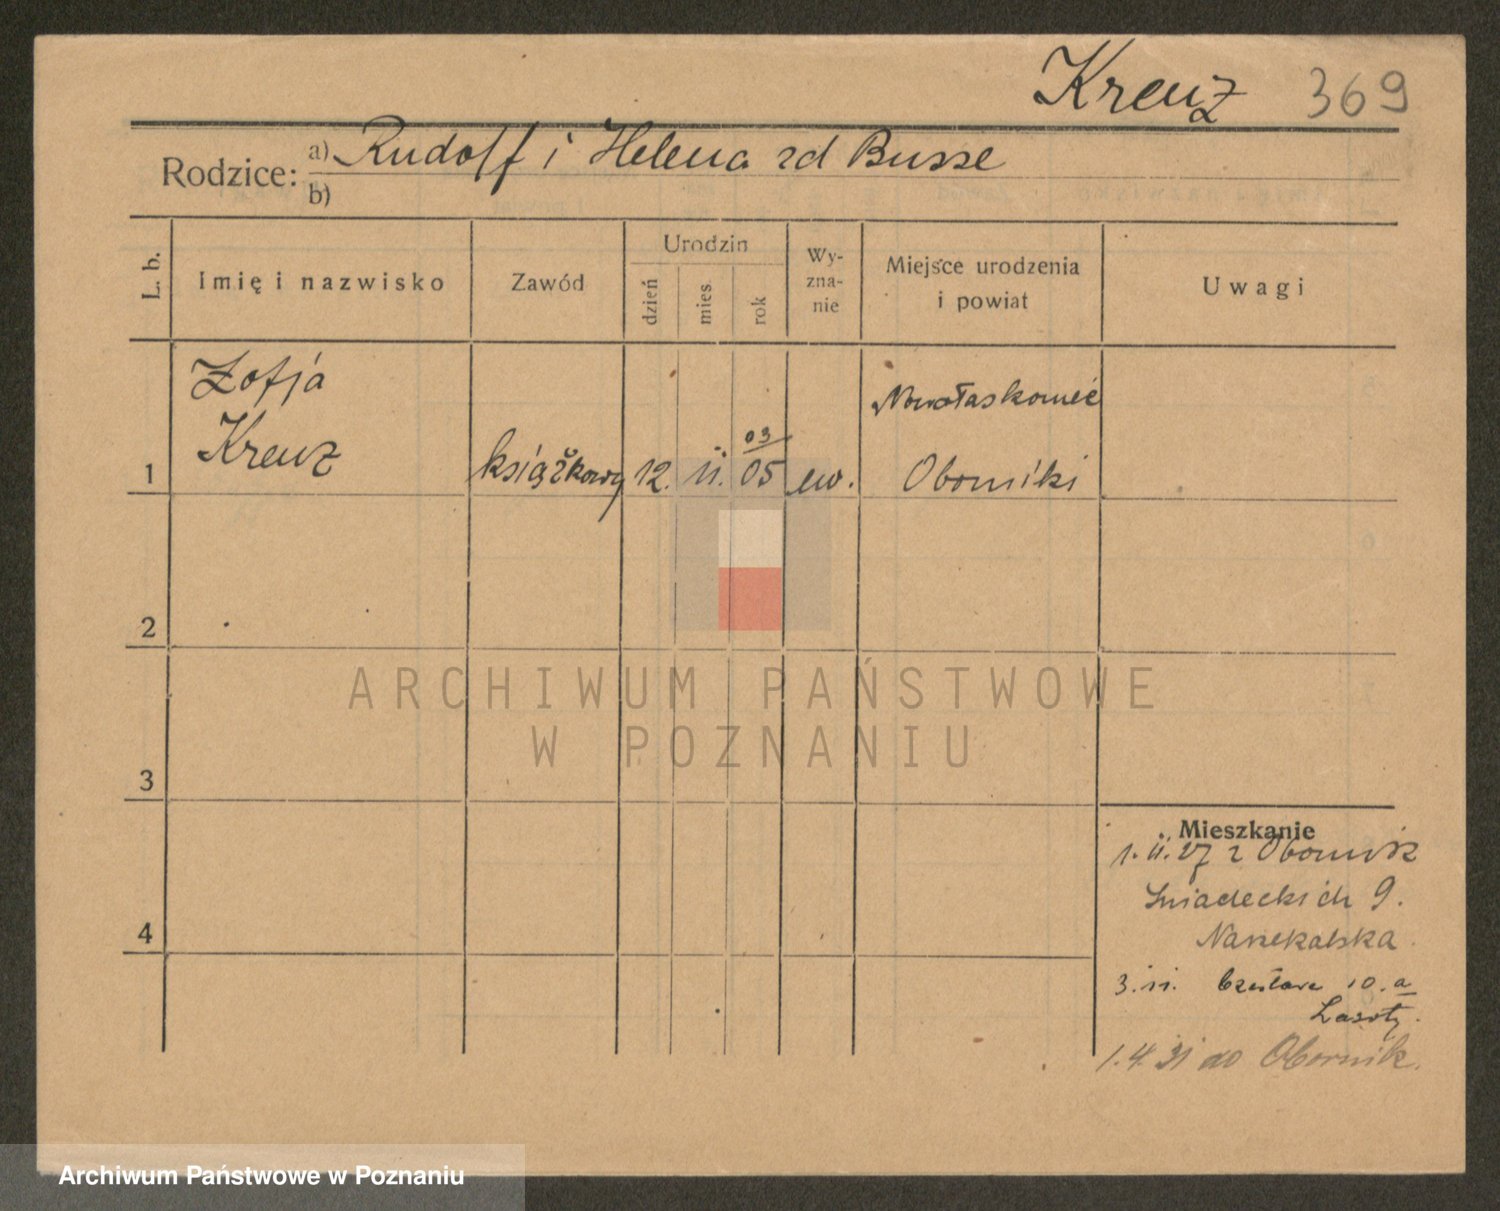 Kreuz 369
Rodzice: a) Rudolf i Helena zd Busse
b)
L. b. Imię i nazwisko Zawód Urodzin dzień mies. rok Wy-zna-nie Miejsce urodzenia i powiat Uwagi
Zofja Nowołaskoniec
Kreuz 03
1 książkowy 12. 11. 05 ew. Oborniki
2
ARCHIWUM PAŃSTWOWE
W POZNANIU
3
Mieszkanie
1. 11. 27 z Obornik
Śniadeckich 9.
4
3. 11. 10. a
Lasoty.
1. 4. 31 do Obornik.
Archiwum Państwowe w Poznaniu